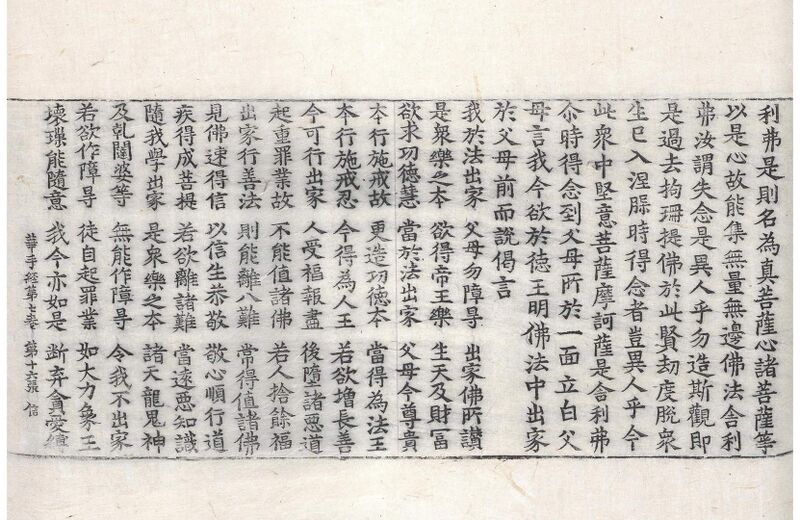 利弗是則名為真菩薩心諸菩薩等
以是心故能集無量無邊佛法舍利
弗汝謂失念是異人乎勿造斯觀即
是過去拘珊提佛於此賢劫度脫衆
生已入涅槃時得念者豈異人乎今
此衆中堅意菩薩摩訶薩是舍利弗
尒時得念到父母所於一面立白父
母言我今欲於德王明佛法中出家
於父母前而說偈言
我於法出家 父母勿障㝵 出家佛所讃
是衆樂之本 欲得帝王樂 生天及財冨
欲求功德慧 當於法出家 父母今尊貴
本行施戒故 更造功德本 當得為法王
本行施戒忍 今得為人王 若欲增長善
今可行出家 人受福報盡 後墮諸惡道
起重罪業故 不能值諸佛 若人捨餘福
出家行善法 則能離八難 常得值諸佛
見佛速得信 以信生恭敬 敬心順行道
疾得成菩提 若欲離諸難 當遠惡知識
隨我學出家 是衆樂之本 諸天龍鬼神
及乹闥婆等 無能作障㝵 令我不出家
若欲作障㝵 徒自起罪業 如大力象王
壞璅能隨意 我今亦如是 断弃貪愛縛
華手經第七卷 第十六張 信